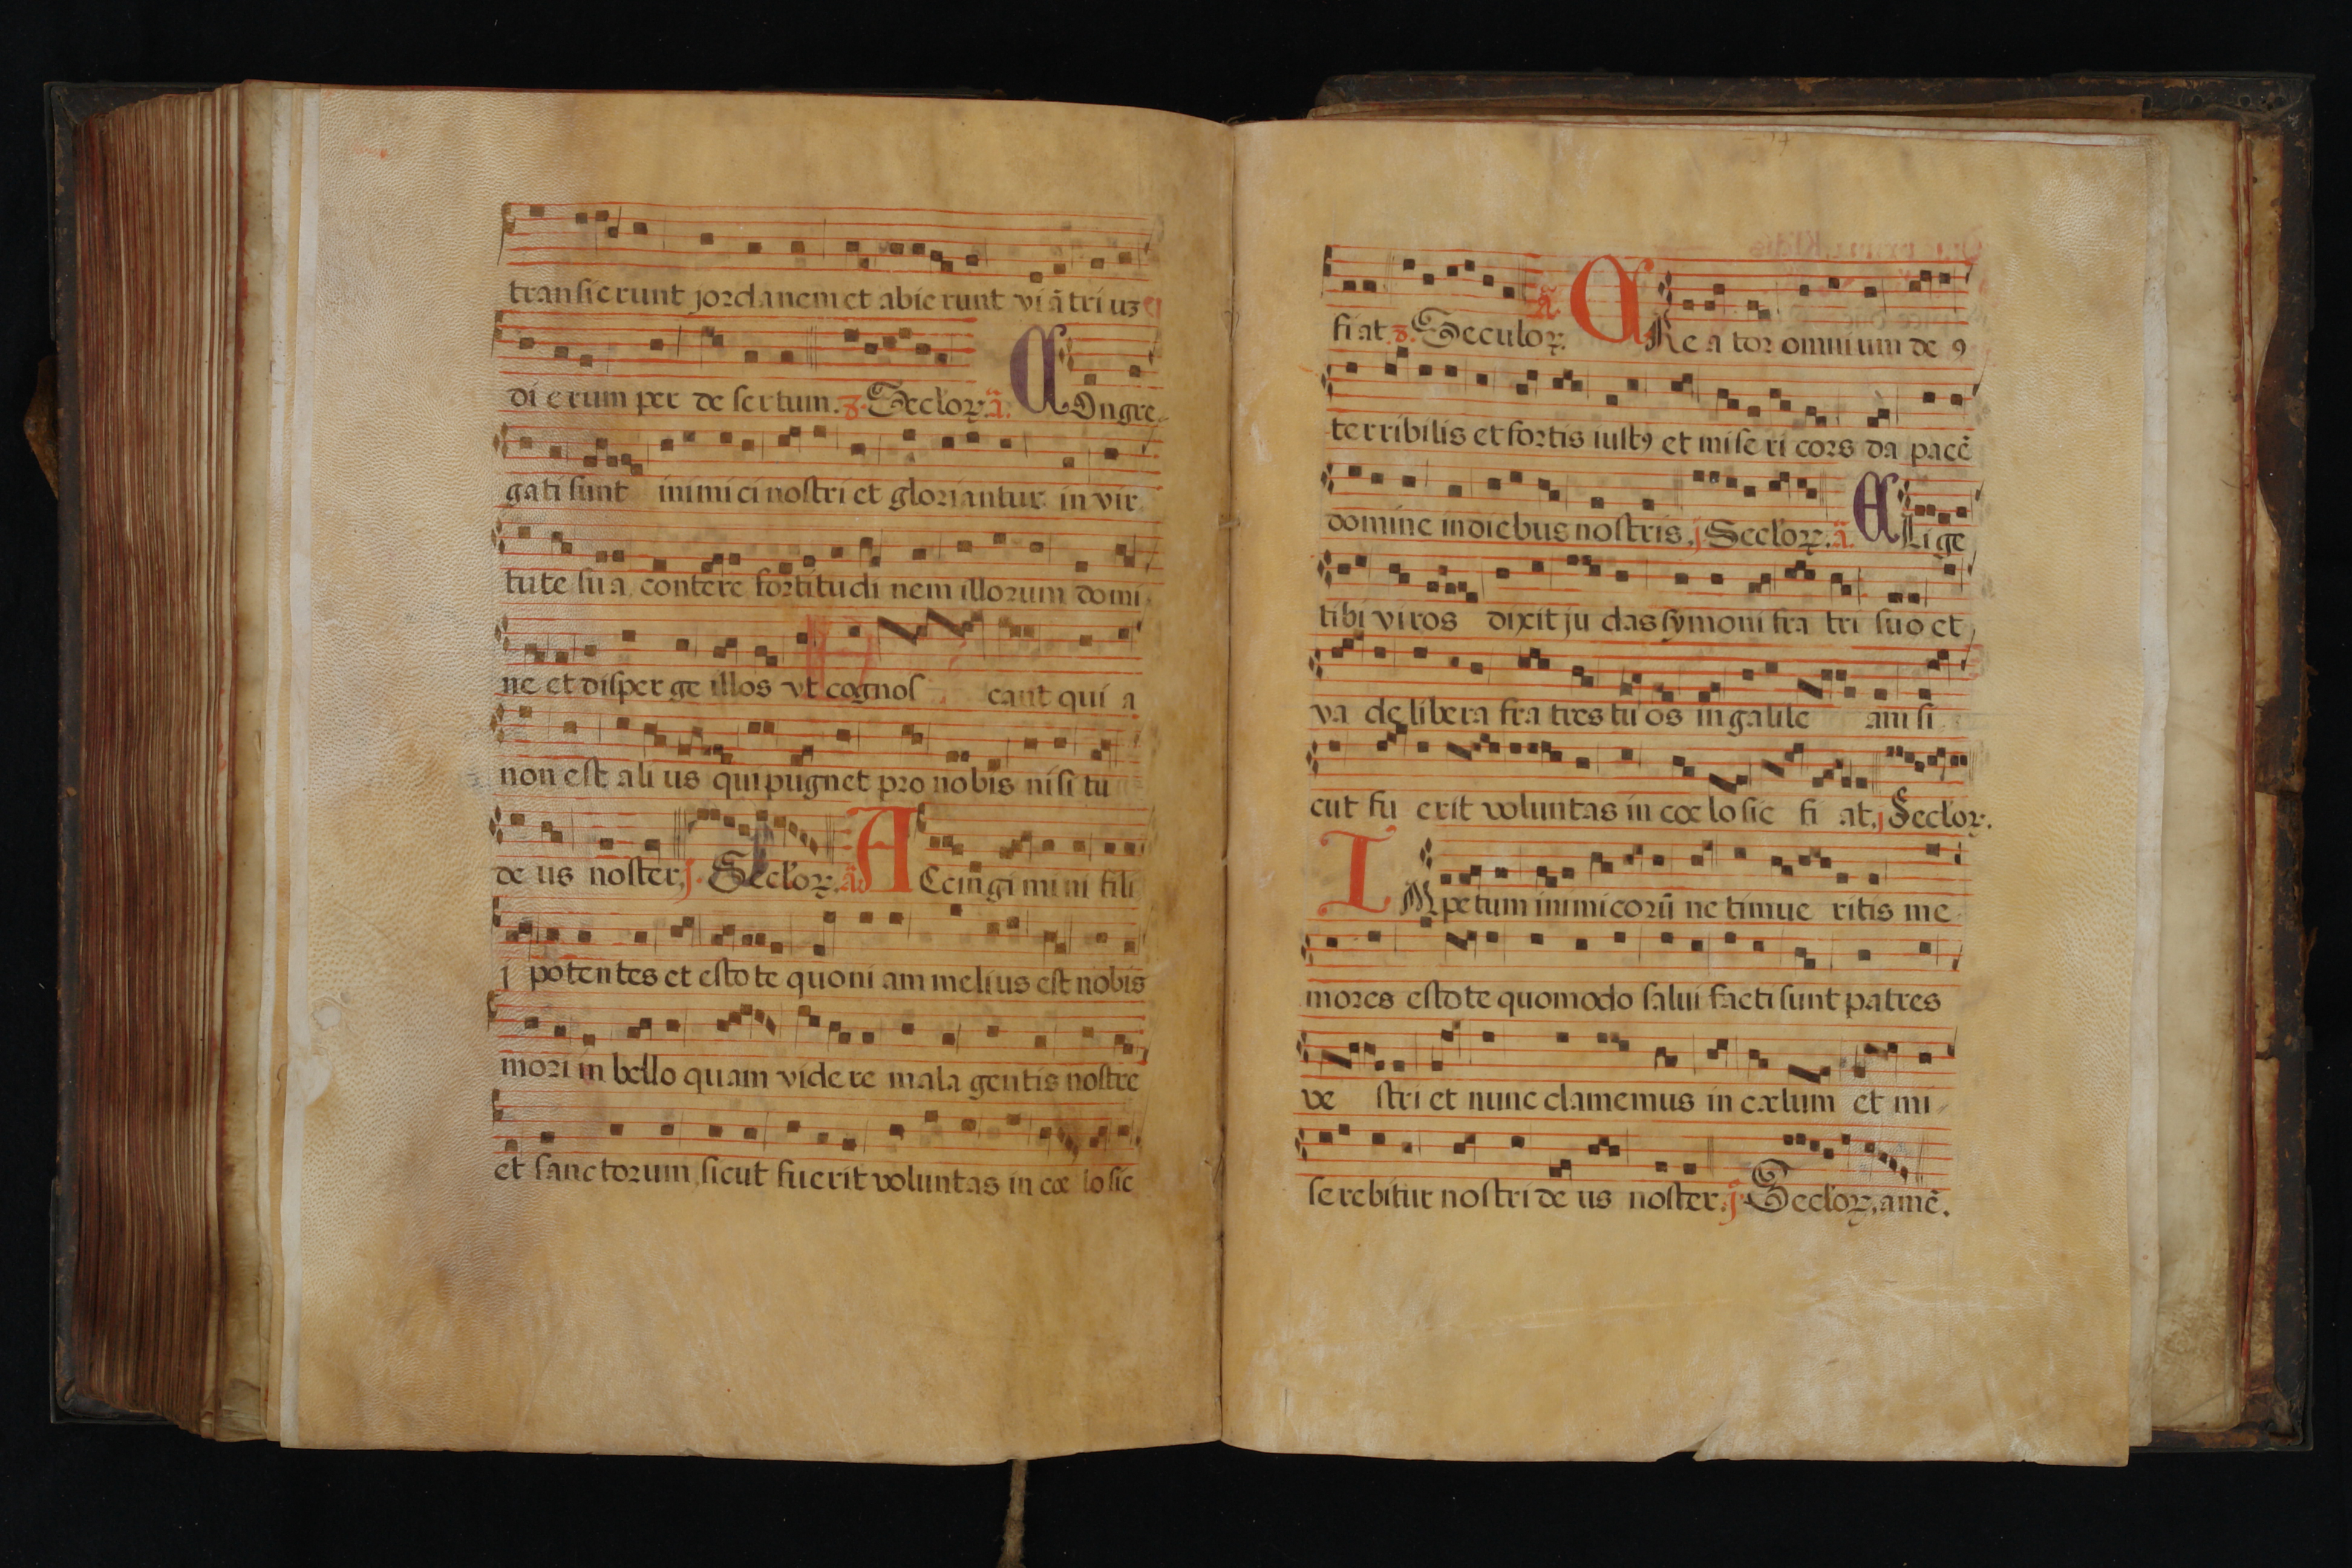 transierunt jordanem et abierunt viā triuꝫ
di erum per de sertum. 8. Secloꝝ. ā. COngre
gati sunt inimici nostri et gloriantur in vir
tute su a, contere fortitudi nem illorum domi
ne et disper ge illos vt cognos cant qui a
non est ali us qui pugnet pro nobis nisi tu
de us noster. j. Secloꝝ. ā. ACcingi mi ni fili
j potentes et estote quoni am melius est nobis
mori in bello quam videre mala gentis nostre
et sanctorum, sicut fuerit voluntas in cœ lo sic
fi at. 8. Seculoꝝ. ā. CRe a tor omnium de ꝯ
terribilis et fortis iustꝯ et mise ri cors da pacē
domine in diebus nostris. j Secloꝝ. ā. ELi ge
tibi viros dixit ju das symoni fra tri suo et
va de libera fra tres tu os in galile am si
cut fu erit voluntas in cœ lo sic fi at. j Secloꝝ.
IMpetum inimicorū ne timue ritis me
mores estote quomodo salui facti sunt patres
ve stri et nunc clamemus in cælum et mi
serebitur nostri de us noster. j. Secloꝝ, amē.